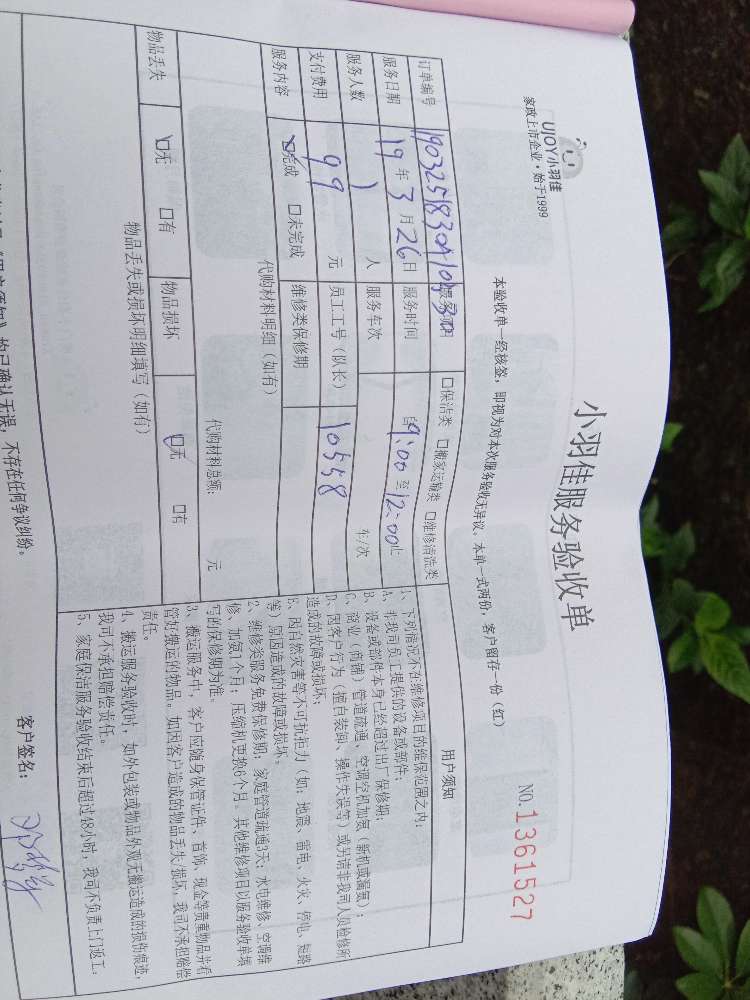 UJOY小羽佳
家政上市企业·始于1999
小羽佳服务验收单
本验收单一经核签，即视为对本次服务验收无异议，本单一式两份，客户留存一份（红）
NO.1361527
订单编号
服务项目 □保洁类 □搬家运输类 □维修清洗类
服务日期 19年3月26日 服务时间 自9:00至12:00止
服务人数 1 人 服务车次 车/次
支付费用 99 元 员工工号（队长） 10558
服务内容 □完成 □未完成 维修类保修期
代购材料明细（如有）
代购材料总额： 元
物品丢失 □无 □有 物品损坏 □无 □有
物品丢失或损坏明细填写（如有）
用户须知
1、下列情况不在维修项目的维保范围之内：
A、非我司员工提供的设备或部件；
B、设备或部件本身已经超过出厂保修期；
C、商业（商铺）管道疏通、空调空机加氨（新机或漏氨）；
D、因客户行为（擅自装卸、操作失误等）或另请非我司人员检修所
造成的故障或损坏；
E、因自然灾害等不可抗拒力（如：地震、雷电、火灾、停电、短路
等）原因造成的故障或损坏。
2、维修类服务免费保修期：家庭管道疏通3天；水电维修、空调维
修、加氨1个月；压缩机更换6个月。其他维修项目以服务验收单填
写的保修期为准。
3、搬运服务中，客户应随身保管证件、首饰、现金等贵重物品并看
管好搬运的物品。如因客户造成的物品丢失/损坏，我司不承担赔偿
责任。
4、搬运服务验收时，如外包装或物品外观无搬运造成的损伤痕迹，
我司不承担赔偿责任。
5、家庭保洁服务验收结束后超过48小时，我司不负责上门返工。
均已确认无误，不存在任何争议纠纷。
客户签名：